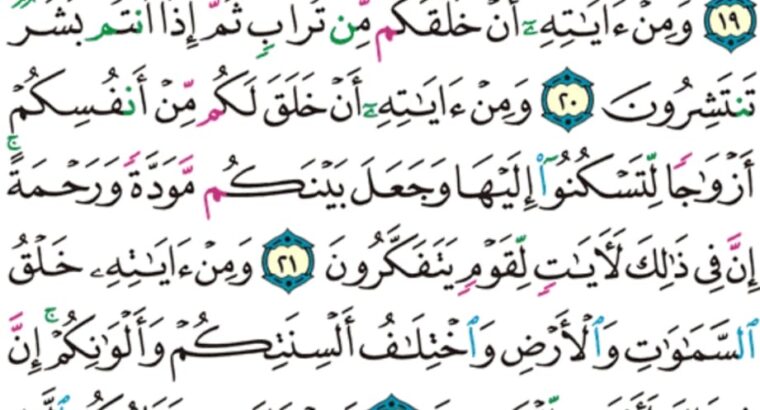 ١٩ وَمِنْ ءَايَٰتِهِۦٓ أَنْ خَلَقَكُم مِّن تُرَابٍ ثُمَّ إِذَآ أَنتُم بَشَرٌ
تَنتَشِرُونَ ٢٠ وَمِنْ ءَايَٰتِهِۦٓ أَنْ خَلَقَ لَكُم مِّنْ أَنفُسِكُمْ
أَزْوَٰجًا لِّتَسْكُنُوٓا۟ إِلَيْهَا وَجَعَلَ بَيْنَكُم مَّوَدَّةً وَرَحْمَةً ۚ
إِنَّ فِى ذَٰلِكَ لَءَايَٰتٍ لِّقَوْمٍ يَتَفَكَّرُونَ ٢١ وَمِنْ ءَايَٰتِهِۦ خَلْقُ
ٱلسَّمَٰوَٰتِ وَٱلْأَرْضِ وَٱخْتِلَٰفُ أَلْسِنَتِكُمْ وَأَلْوَٰنِكُمْ ۚ إِنَّ